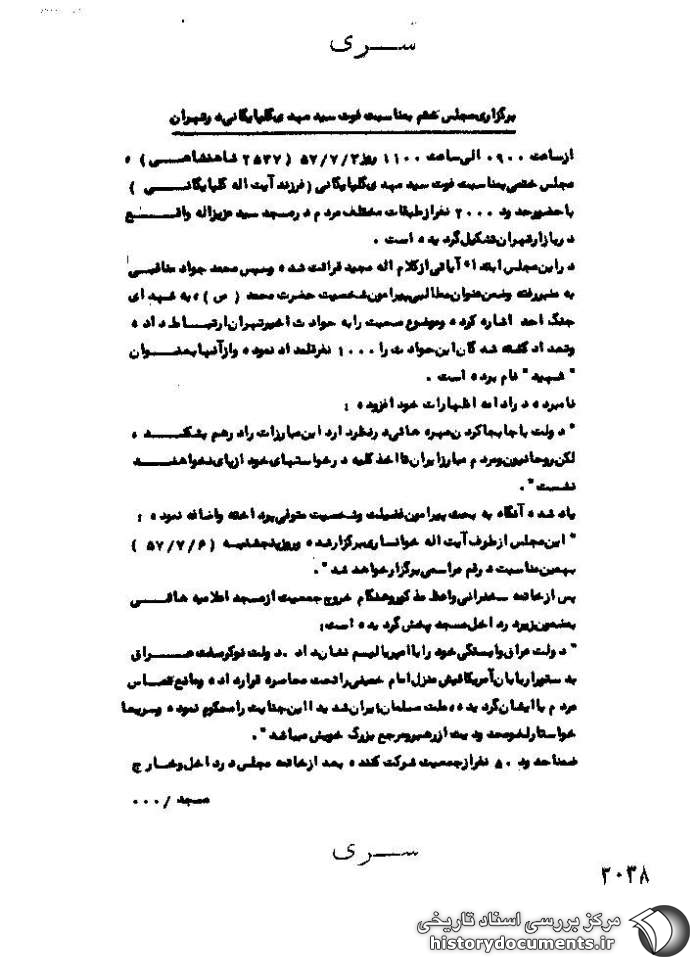 سـری
برگزاری مجلس ختم بمناسبت فوت سید مهدی گلپایگانی در تهران
از ساعت ۰۹۰۰ الی ساعت ۱۱۰۰ روز ۵۷/۷/۳ (۲۵۳۷ شاهنشاهـی) ه
مجلس ختمی بمناسبت فوت سید مهدی گلپایگانی (فرزند آیت اله گلپایگانـی)
با حضور حدود ۲۰۰۰ نفر از طبقات مختلف مردم در مسجد سید عزیزاله واقـع
در بازار تهران تشکیل گردیده است .
در این مجلس ابتدا آیاتی از کلام اله مجید قرائت شده و سپس محمد جواد مناقبی
به منبر رفته و ضمن عنوان مطالبی پیرامون شخصیت حضرت محمد (ص) ، به شهدای
جنگ احد اشاره کرده و موضوع صحبت را به حوادث اخیر تهران ارتبـاط داده
و تعداد کشته شدگان این حوادث را ۱۰۰۰ نفر قلمداد نموده و از آنها بعنـوان
" شهید " نام برده است .
نامبرده در ادامه اظهارات خود افزوده :
" دولت با جابجا کردن مهره هائی در نظر دارد این مبارزات را در هم بشکنـد ،
لکن روحانیون و مردم مبارز ایران تا اخذ کلیه درخواستهای خود از پای نخواهنـد
نشست " .
یاد شده آنگاه به بحث پیرامون فضیلت و شخصیت متوفی پرداخته و اضافه نموده :
" این مجلس از طرف آیت اله خوانساری برگزار شده و روز پنجشنبـه (۵۷/۷/۶)
بهمین مناسبت در قم مراسمی برگزار خواهد شد " .
پس از خاتمه سخنرانی واعظ مذکور و هنگام خروج جمعیت از مسجد اعلامیه هائـی
بمضمون زیر در داخل مسجد پخش گردیده است :
" دولت عراق وابستگی خود را با امپریالیسم نشان داد . دولت نوکر صفت عـراق
به دستور اربابان آمریکائیش منزل امام خمینی را تحت محاصره قرار داده و مانع تمـاس
مردم با ایشان گردیده ، ملت مسلمان ایران شدیداً این جنایت را محکوم نموده و سریعا
خواستار لغو محدودیت از رهبر و مرجع بزرگ خویش میباشد " .
ضمنا حدود ۵۰ نفر از جمعیت شرکت کننده بعد از خاتمه مجلس در داخل و خارج
مسجد / ۰۰۰
سـری
۲۰۳۸
مرکز بررسی اسناد تاریخی
historydocuments.ir